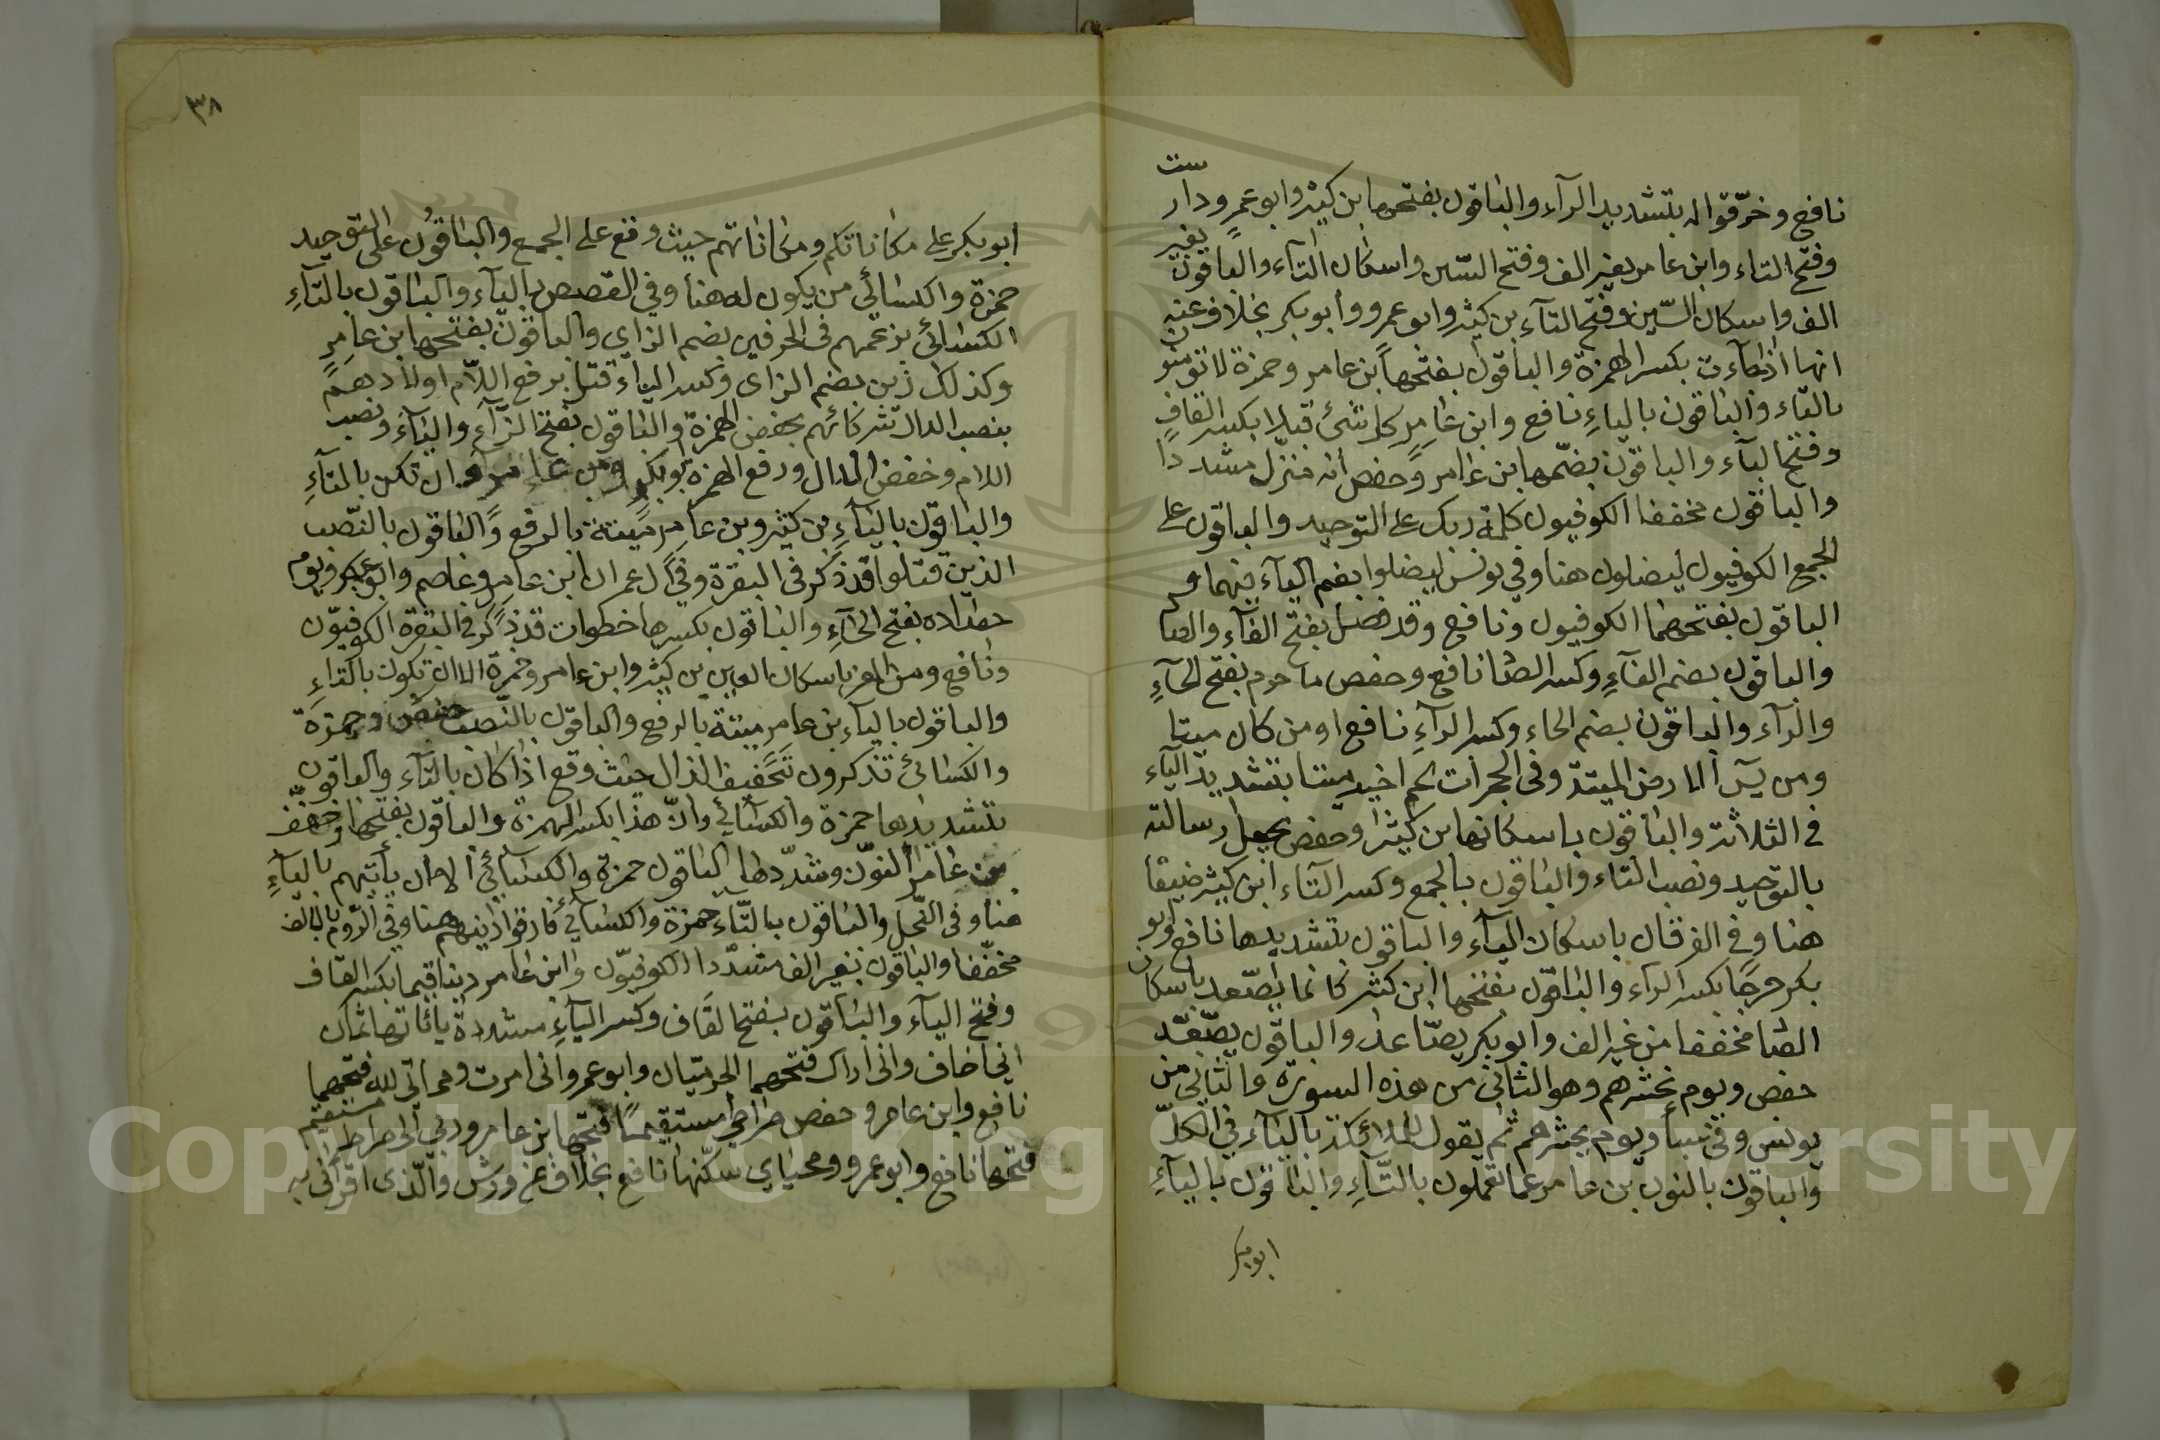 نافع وخرّقوا له بتشديد الرآء والباقون بفتحها بن كثير وابو عمرٍو دارست
وفتح التاء وابن عامر بغير الف وفتح السّين واسكان التآء والباقون بغير
الف واسكان السّين وفتح التآء بن كثير وابو عمرو وأبو بكر بخلاف عنه
انها اذا جآءت بكسر الهمزة والباقون بفتحها بن عامر وحمزة لا تؤمنون
بالتاء والباقون بالياءِ نافع وابن عامِرٍ كل شئ قبلا بكسر القافِ
وفتح الباء والباقون بضمّهما بن عامر وحفص انه منزل مشددًا
والباقون مخففا الكوفيون كلمة ربك على التوحيد والباقون على
الجمع الكوفيون ليضلون هنا وفي يونس ليضلوا بضم اليآء فيهما و
الباقون بفتحهما الكوفيون ونافع وقد فصل بفتح الفآء والصا
والباقون بضم الفآءِ وكسر الصا نافع وحفص ما حرم بفتح الحآءِ
والرآء والباقون بضم الحاء وكسر الرآءِ نافع او من كان ميتا
ومن يٓس الارض الميتة وفى الحجرات لحم اخيه ميتا بتشديد اليآء
في الثلاثة والباقون باسكانها بن كثير وحفص يجعل رسالته
بالتوحيد ونصب التاء والباقون بالجمع وكسر التاء ابن كثير ضيقا
هنا وفي الفرقان باسكان اليآء والباقون بتشديدها نافع وابو
بكر حرجًا بكسر الرآء والباقون بفتحها ابن كثير كانما يصعد باسكان
الصا مخففا من غير الف وابو بكر يصّاعد والباقون يصّعّد
حفص ويوم نحشرهم وهو الثانى من هذه السورة والثاني من
يونس وفي سبأ ويوم يحشرهم ثم يقول للملائكة باليآء في الكلّ
والباقون بالنون بن عامر عما تعملون بالتّآءِ والباقون باليآءِ
ابو بكر
٣٨
ابو بكر على مكاناتكم ومكاناتهم حيث وقع على الجمع والباقُون على التوحيد
حمزة والكسائي من يكون له هنا وفي القصص باليآء والباقون بالتآءِ
الكسائي بزعمهم فى الحرفين بضم الزاي والباقون بفتحها ابن عامِرٍ
وكذلك زُين بضم الزاى وكسر الياء قتل برفع اللّام اولادهم
بنصب الدال شركائهم بخفض الهمزة والباقون بفتح الزآءِ واليآء ونصب
اللام وخفض الدال ورفع الهمزة ابو بكر وبن عامر وان تكن بالتآءِ
والباقون باليآءِ بن كثير وبن عامر ميتة بالرفع والباقون بالنّصب
الذين قتلوا قد ذكر فى البقرة وفي آل عمران ابن عامِر وعاصم وابو عمرو يوم
حصاده بفتح الحآءِ والباقون بكسرها خطوات قد ذكر في البقرة الكوفيّون
ونافع ومن المعز باسكان العين بن كثير وابن عامر وحمزة الا ان تكون بالتاءِ
والباقون باليآء بن عامر ميتة بالرفع والباقون بالنّصب حفص وحمزة
والكسائى تذكرون بتخفيف الذال حيث وقع اذا كان بالتآء والباقون
بتشديدها حمزة والكسآئي وانّ هذا بكسر الهمزة والباقون بفتحها وخفّف
بن عامر النّون وشدّدها الباقون حمزة والكسآئي الا ان يأتيهم باليآءِ
هنا وفى النّحل والباقون بالتّاءِ حمزة والكسآئي فارقوا دينهم هنا وفي الرّوم بالالف
مخفّفا والباقون بغير الف مشدّدا الكوفيّون وابن عامر دينا قيما بكسر القاف
وفتح اليآء والباقون بفتح القاف وكسر اليآءِ مشددة ياٰتها ثمان
اني اخاف واني اراك فتحهما الحرميّان وابو عمرو انى امرت ومماتي لله فتحهما
نافع وابن عامر وحفص صراطى مستقيمًا فتحها بن عامر وربي الى صراط مستقيم
فتحها نافع وابو عمرو ومحياي سكّنها نافع بخلاف عن ورش والّذى اقرأنى به